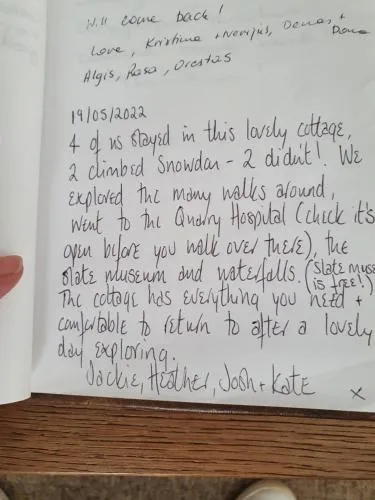 Will come back!
Love, Kristina + Nerijus, Demas, +
Dana
Algis, Rasa, Orestas
19/05/2022
4 of us stayed in this lovely cottage,
2 climbed Snowdon - 2 didn't! We
explored the many walks around,
went to the Quarry Hospital (check it's
open before you walk over there), the
slate museum and waterfalls. (slate muse
is free!)
The cottage has everything you need +
comfortable to return to after a lovely
day exploring.
Jackie, Heather, Josh + Kate
x